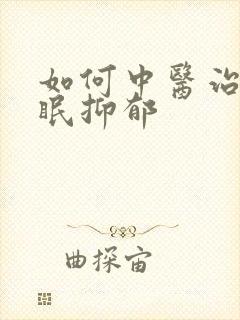 如何中醫治
眠抑郁
曲探宙